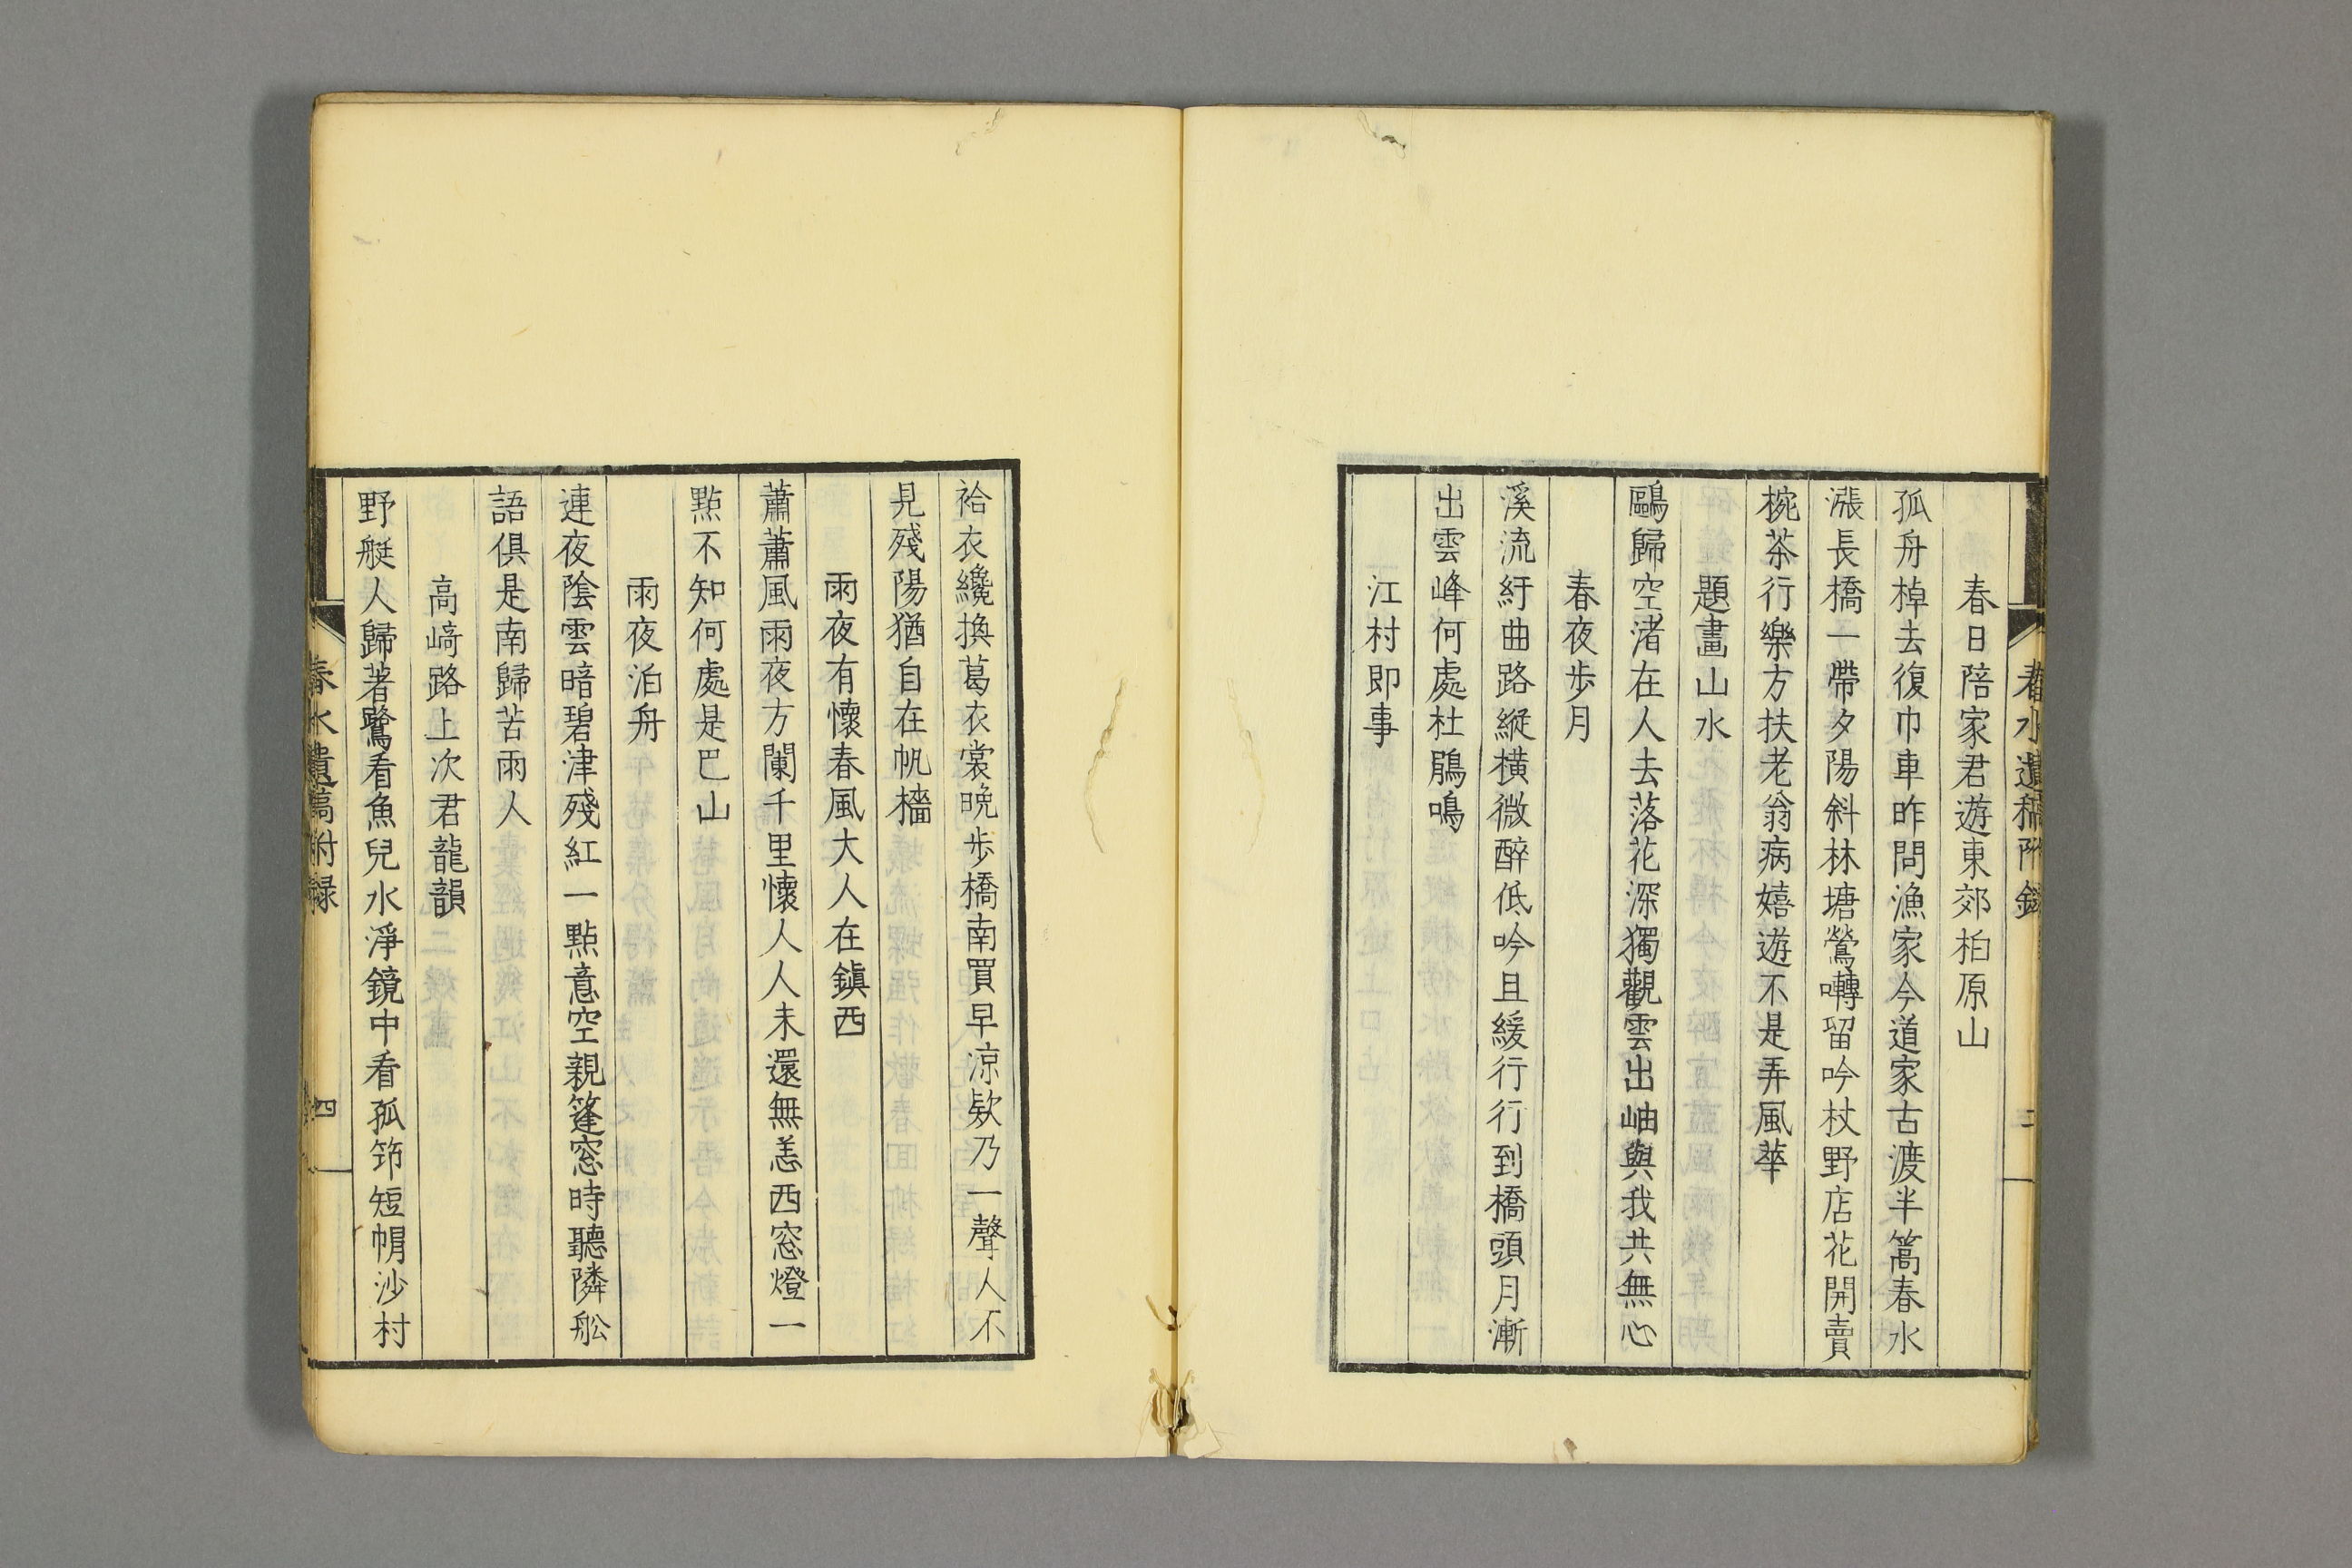 春水遺稿附錄
三
春日陪家君遊東郊柏原山
孤舟棹去復巾車昨問漁家今道家古渡半篙春水
漲長橋一帶夕陽斜林塘鶯囀留吟杖野店花開賣
椀茶行樂方扶老翁病嬉遊不是弄風華
題畫山水
鷗歸空渚在人去落花深獨觀雲出岫與我共無心
春夜步月
溪流紆曲路縱橫微醉低吟且緩行行到橋頭月漸
出雲峰何處杜鵑鳴
江村即事
袷衣纔換葛衣裳晚步橋南買早涼欸乃一聲人不
見殘陽猶自在帆檣
雨夜有懷春風大人在鎮西
蕭蕭風雨夜方闌千里懷人人未還無恙西窓燈一
點不知何處是巴山
雨夜泊舟
連夜陰雲暗碧津殘紅一點意空親篷窓時聽隣舩
語俱是南歸苦雨人
高﨑路上次君龍韻
野艇人歸著鷺看魚兒水淨鏡中看孤笻短帽沙村
春水遺稿附録
四